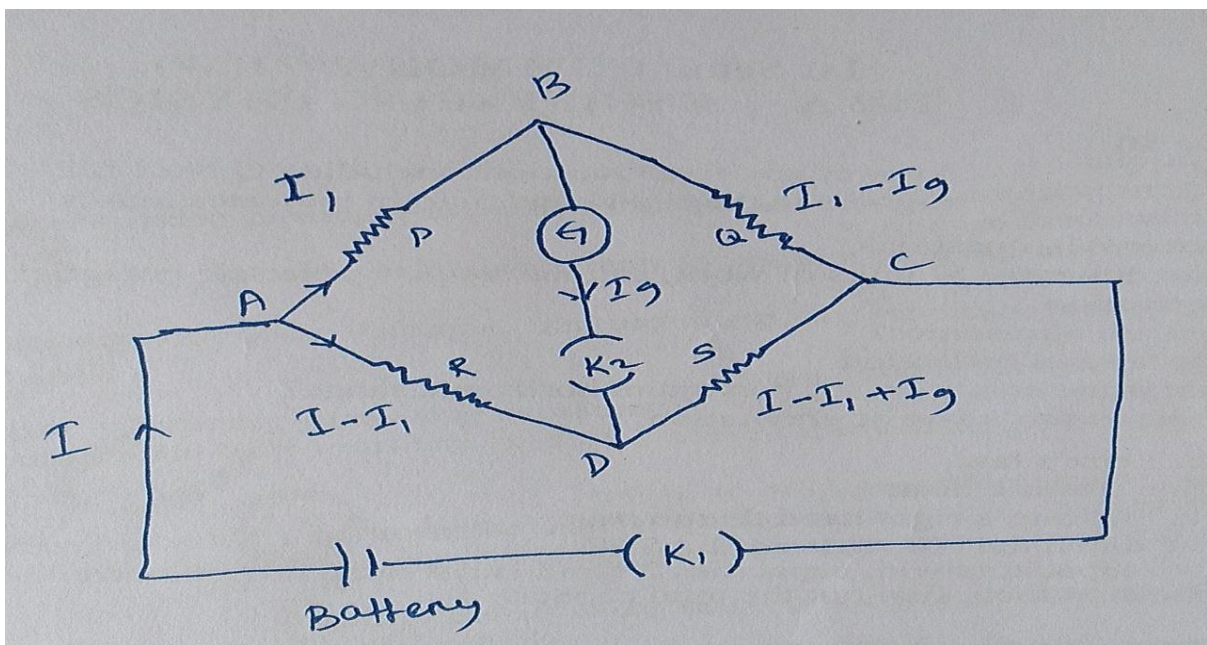 B
I₁
P
G
Q
I₁ - Ig
A
Ig
C
R
K2
S
I - I₁
I - I₁ + Ig
I
D
(K₁)
Battery